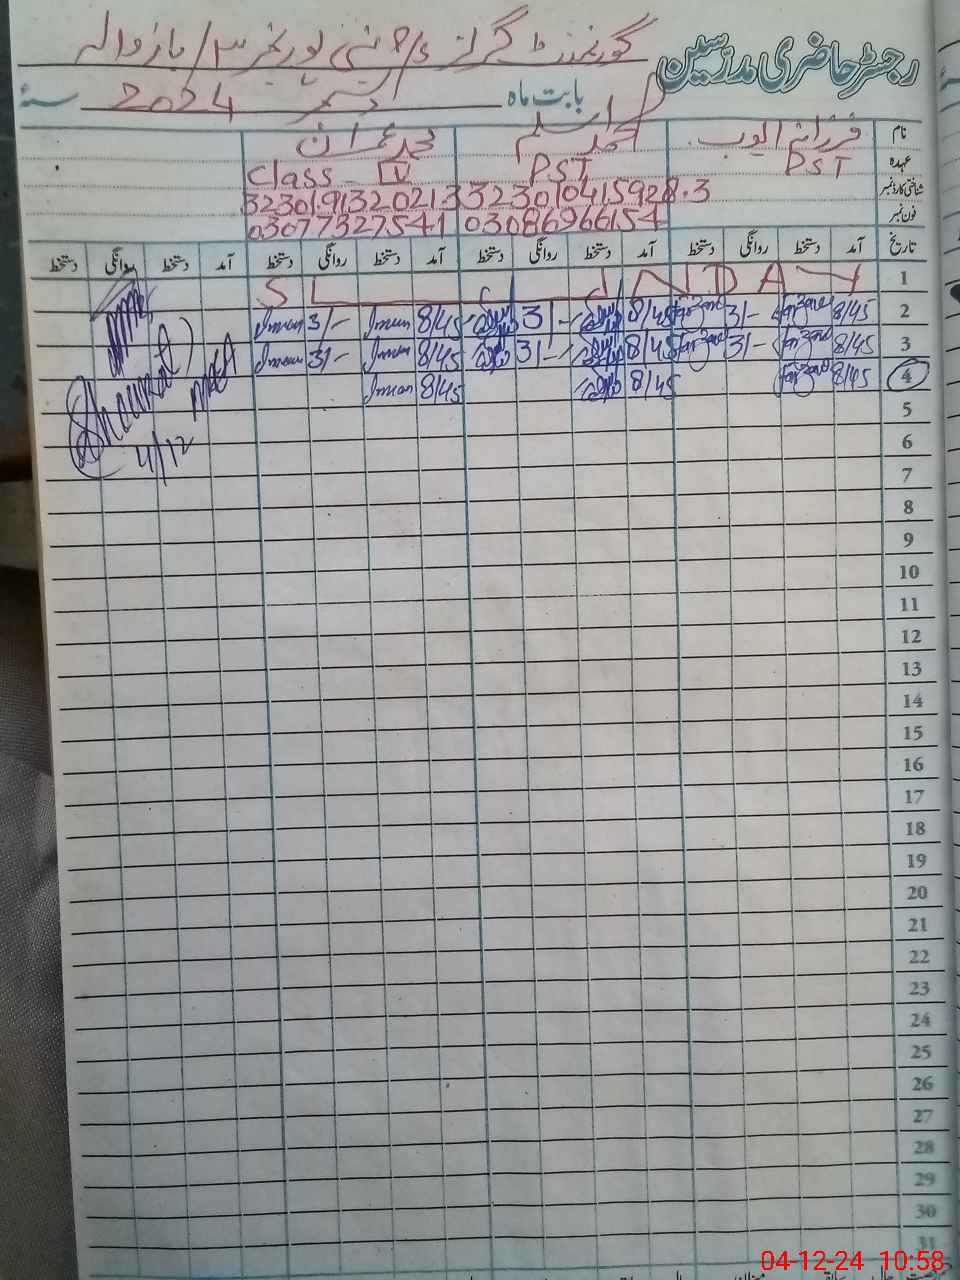 رجسٹر حاضری مدرسین گورنمنٹ گرلز
بابت ماہ دسمبر 2024 سنہ
نام فرزانہ ایوب محمد اسلم محمد عمران
عہدہ PST PST Class - IV
شناختی کارڈ نمبر 3230104159283 3230191320213
فون نمبر 03086966154 03077327541
تاریخ آمد دستخط روانگی دستخط آمد دستخط روانگی دستخط آمد دستخط روانگی دستخط آمد دستخط روانگی دستخط
1 S U N D A Y
2 8/45 Farzana 3/- Farzana 8/45 3/- 8/45 Imran 3/- Imran
3 8/45 Farzana 3/- Farzana 8/45 3/- 8/45 Imran 3/- Imran
4 8/45 Farzana 8/45 8/45 Imran
Shoukat
MEA
4/12
5
6
7
8
9
10
11
12
13
14
15
16
17
18
19
20
21
22
23
24
25
26
27
28
29
30
31
04-12-24 10:58